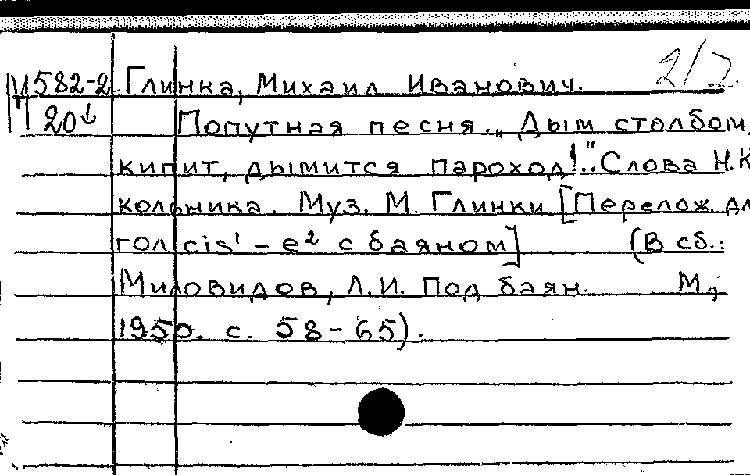 М582-2 Глинка, Михаил Иванович. 2/
П 20↓ Попутная песня. „Дым столбом,
кипит, дымится пароход!.." Слова Н.К
кольника. Муз. М. Глинки [Перелож. дл
гол cis¹ – e² с баяном] (В сб.:
Миловидов, Л.И. Под баян. М.,
1950. с. 58-65).